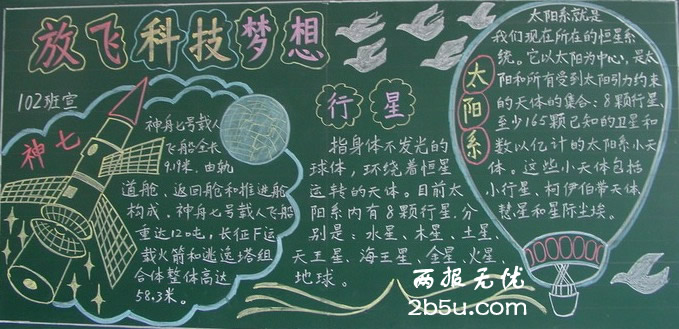 放飞科技梦想
102班宣
神七
神舟七号载人
飞船全长
9.19米，由轨
道舱、返回舱和推进舱
构成，神舟七号载人飞船
重达12吨，长征F运
载火箭和逃逸塔组
合体整体高达
58.3米。
行星
指身体不发光的
球体，环绕着恒星
运转的天体。目前太
阳系内有8颗行星，分
别是：水星、木星、土星、
天王星、海王星、金星、火星、
地球。
太阳系
太阳系就是
我们现在所在的恒星系
统。它以太阳为中心，是太
阳和所有受到太阳引力约束
的天体的集合：8颗行星、
至少165颗已知的卫星和
数以亿计的太阳系小天
体。这些小天体包括
小行星、柯伊伯带天体、
慧星和星际尘埃。
两报无忧
2b5u.com